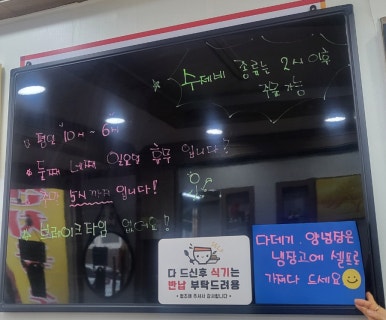 * 수제비 종류는 2시 이후
주문 가능
평일 10시 ~ 6시
* 둘째 넷째 일요일 휴무 입니다!
5시까지 입니다!
* 브레이크타임 없어요!
다 드신후 식기는
반납 부탁드려용
다데기. 양념장은
냉장고에 셀프로
가져다 드세요